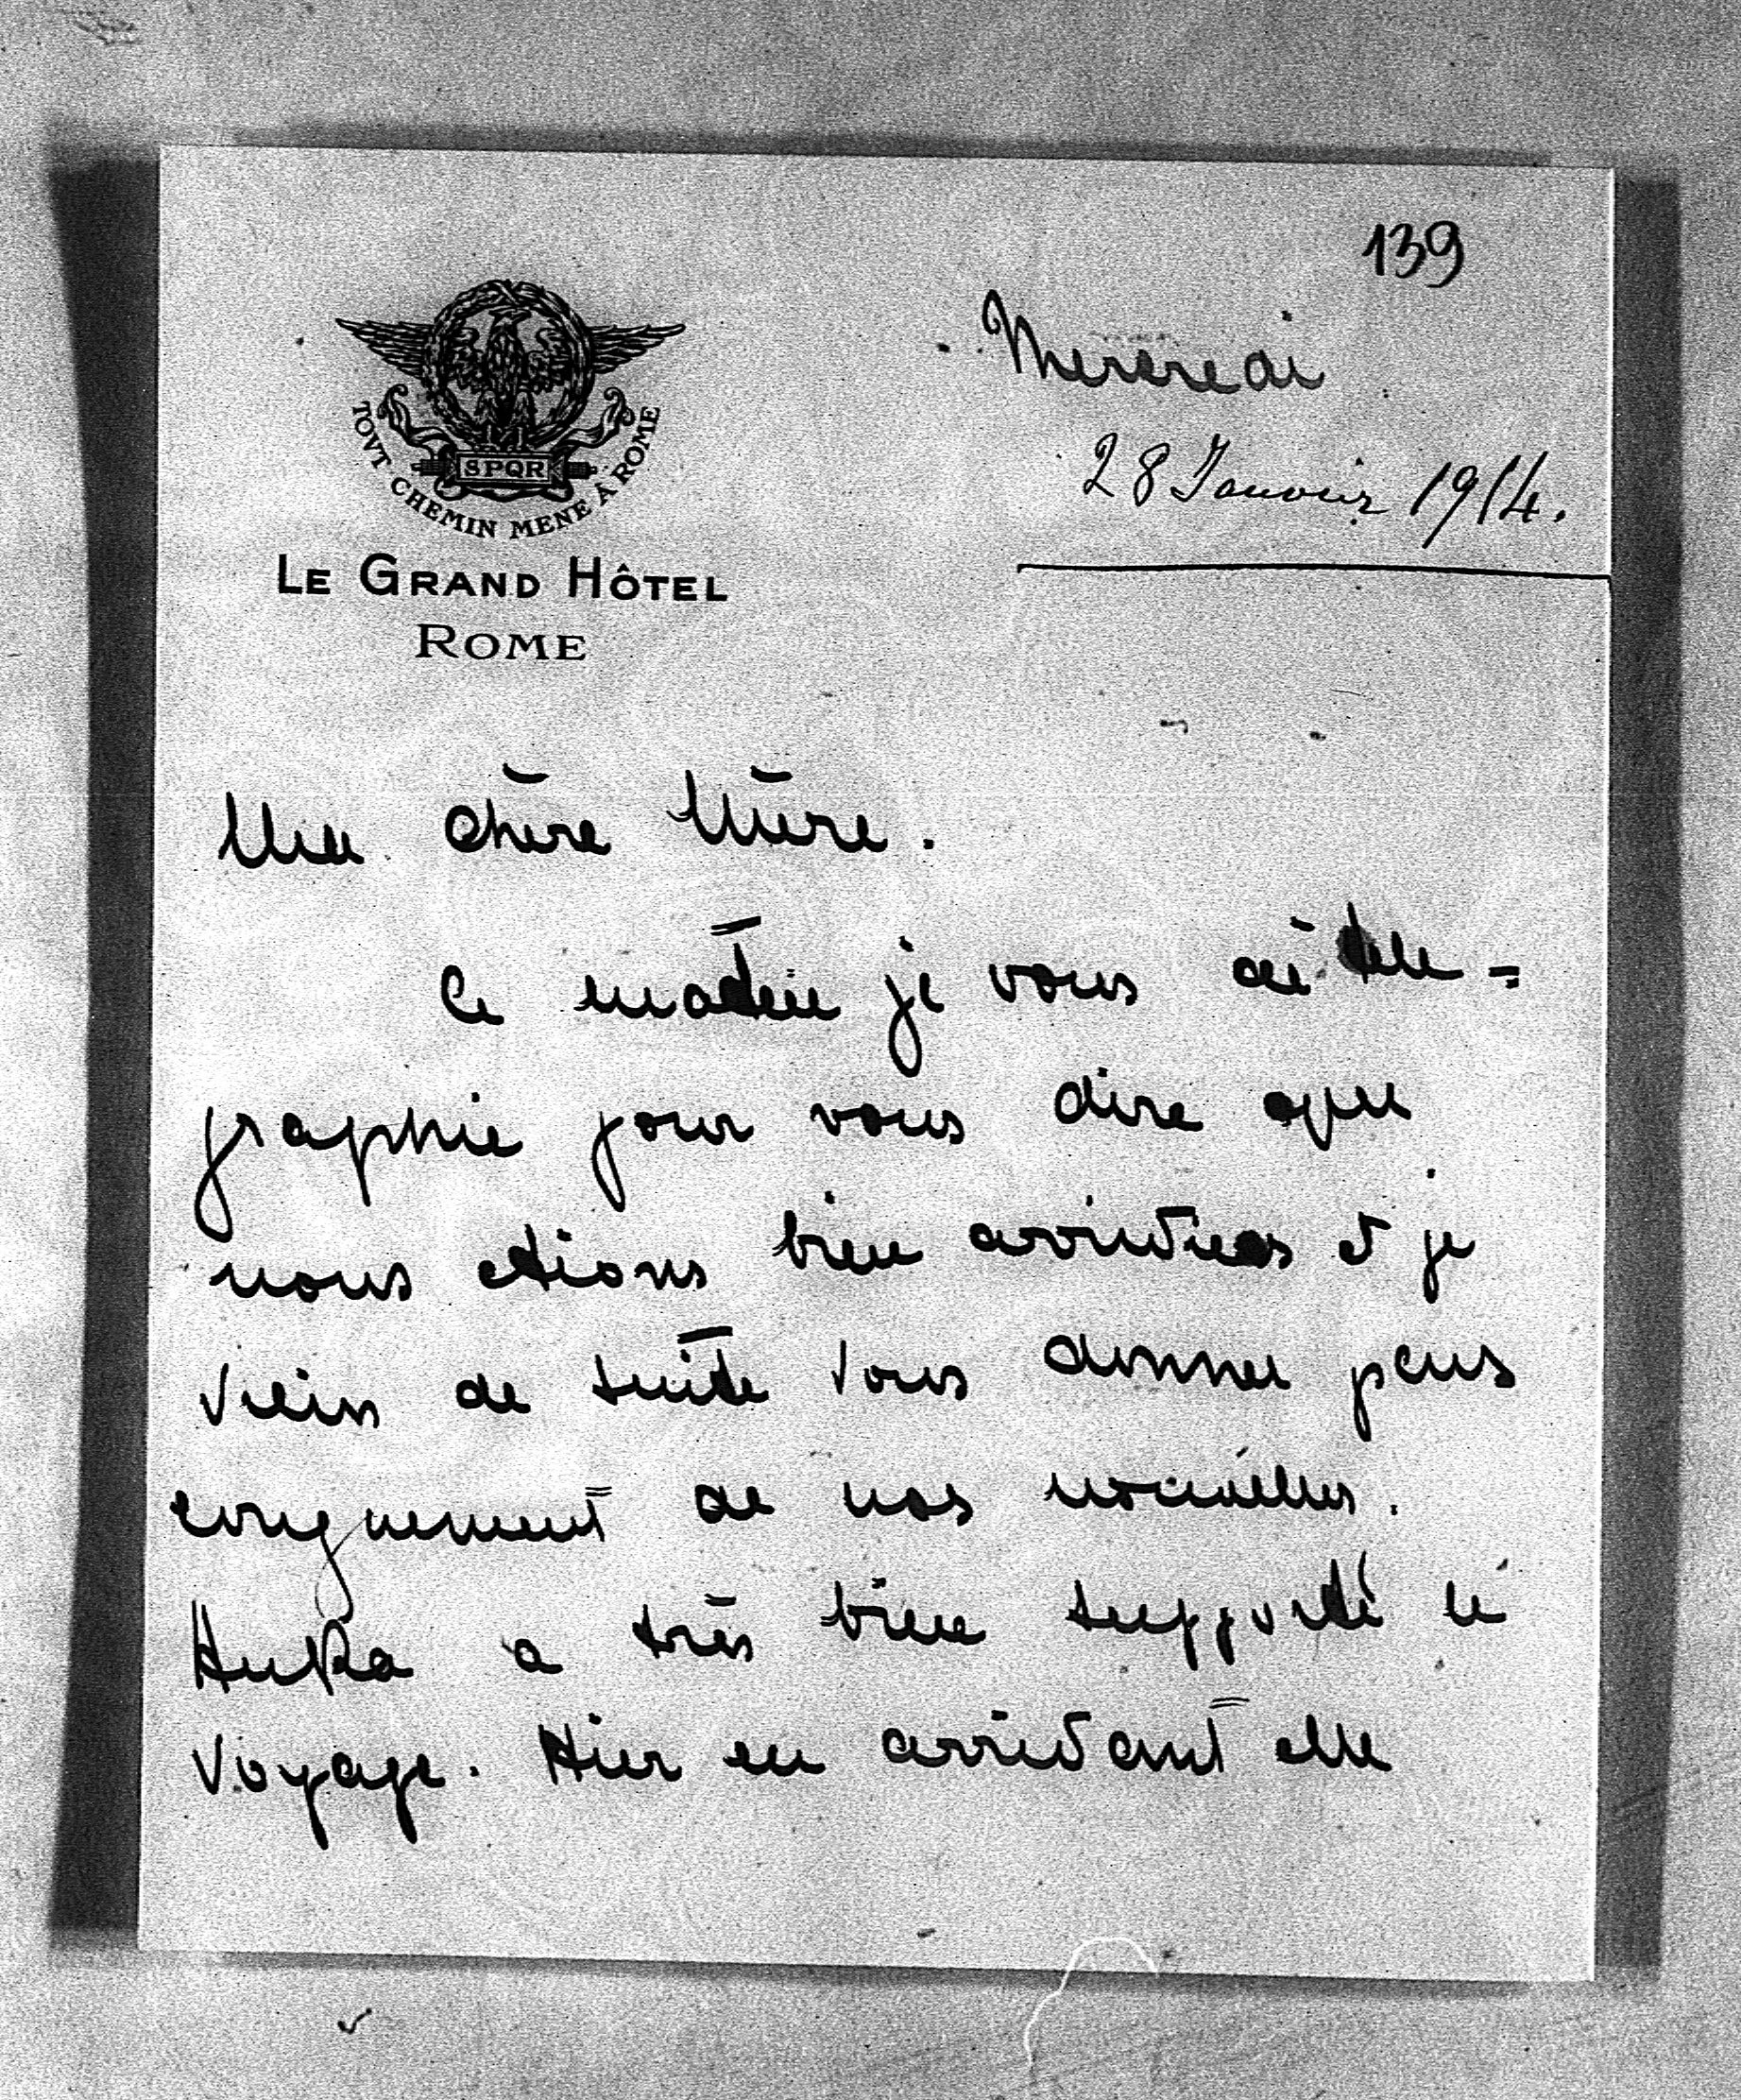 139
Mercredi
28 Janvier 1914.
TOVT CHEMIN MENE À ROME
SPQR
LE GRAND HÔTEL
ROME
Ma chère Mère.
Ce matin je vous ai téle=
graphié pour vous dire que
nous étions bien arrivées et je
viens de suite vous donner plus
longuement de nos nouvelles.
a très bien supporté le
voyage. Hier en arrivant elle